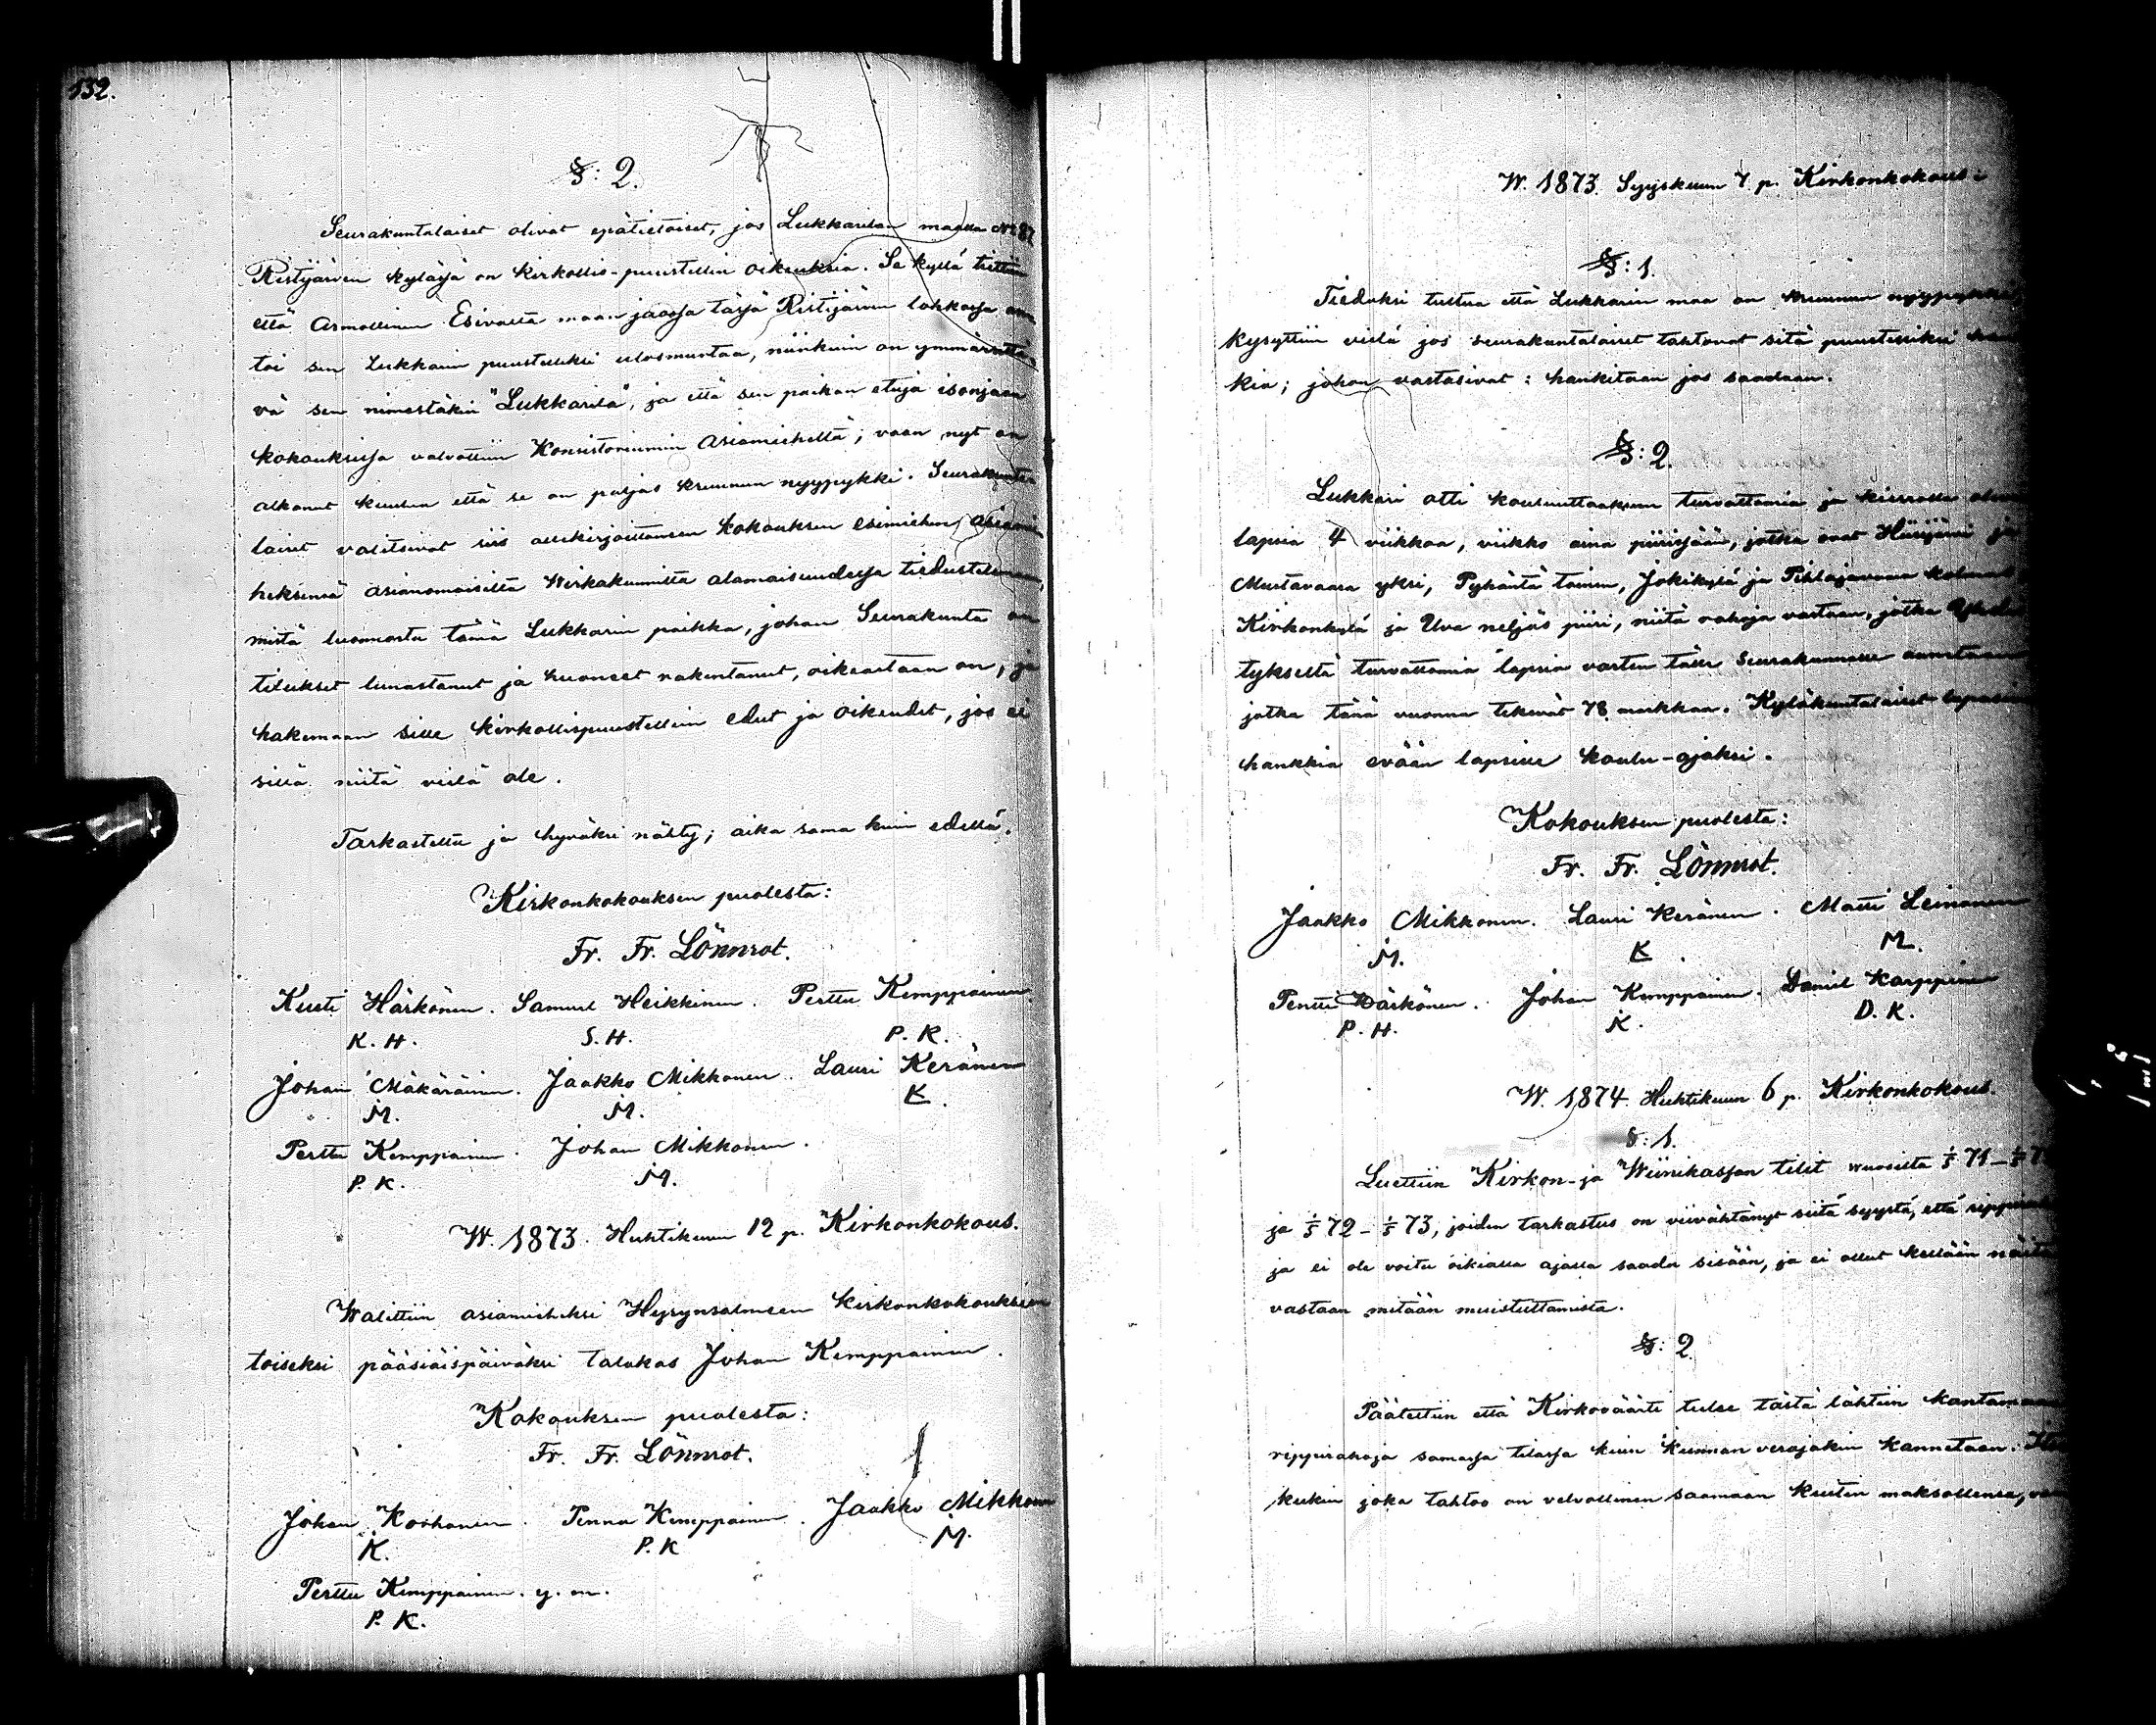 132.
§: 2.
Seurakuntalaiset olivat epätietoiset, jos Lukkarilan maalla № 87
Ristijärven kylässä on kirkollis-puustellin oikeuksia. Se kyllä tiettiin
että Armollinen Esivalta maan jaossa tässä Ristijärven lohkossa an-
toi sen Lukkarin puustelliksi ulosmuntaa, niinkuin on ymmärrettä-
vä sen nimestäkin "Lukkarila", ja että sen paikan etuja isonjaan
kokouksissa valvottiin Konsistoriumin Asiamieheltä; vaan nyt on
alkanut kuulua että se on paljas kruunun nyypykki. Seurakunta-
laiset valitsivat siis allekirjoittaneen kokouksen esimiehen asiamie-
heksensä asianomaisilta Wirkakunnilta alamaisuudessa tiedustelemaan,
mistä luonnosta tämä Lukkarin paikka, johon Seurakunta on
tilukset lunastanut ja huoneet rakentanut, oikeastaan on, ja
hakemaan sille kirkollispuustellin edut ja oikeudet, jos ei
sillä niitä vielä ole.
Tarkastettu ja hyväksi nähty; aika sama kuin edellä.
Kirkonkokouksen puolesta:
Fr. Fr. Lönnrot.
Kusti Härkönen. Samuel Heikkinen. Perttu Kemppainen.
K. H. S. H. P. K.
Johan Mäkäräinen. Jaakko Mikkonen. Lauri Keränen
M. M. K.
Perttu Kemppainen. Johan Mikkonen.
P. K. M.
W. 1873. Huhtikuun 12 p. Kirkonkokous.
Walittiin asiamieheksi Hyrynsalmeen kirkonkokoukseen
toiseksi pääsiäispäiväksi talokas Johan Kemppainen.
Kokouksen puolesta:
Fr. Fr. Lönnrot.
Johan Korhonen. Penna Kemppainen. Jaakko Mikkonen
K. P. K M.
Perttu Kemppainen. y. m.
P. K.
W. 1873. Syyskuun 7 p. Kirkonkokous.
§: 1.
Tieduksi tultua että Lukkarin maa on kruunun nyypykki,
kysyttiin vielä jos seurakuntalaiset tahtovat sitä puustelliksi han-
kia; johon vastasivat: hankitaan jos saadaan.
§: 2.
Lukkari otti kouluuttaaksensa turvattomia ja kierrolla olevia
lapsia 4 viikkoa, viikko aina piirissään, jotka ovat Hiisijärvi ja
Mustavaara yksi, Pyhäntä toinen, Jokikylä ja Pihlajavaara kolmas
Kirkonkylä ja Uva neljäs piiri, niitä rahoja vastaan, jotka Yhdis-
tykseltä turvattomia lapsia varten tälle Seurakunnalle annetaan
jotka tänä vuonna tekevät 78 markkaa. Kyläkuntalaiset lupasivat
hankkia evään lapsille koulu-ajaksi.
Kokouksen puolesta:
Fr. Fr. Lönnrot.
Jaakko Mikkonen. Lauri Keränen. Matti Leinonen
M. K. M.
Pentti Härkönen. Johan Kemppainen. Daniel Karppinen
P. H. K. D. K.
W. 1874. Huhtikuun 6 p. Kirkonkokous.
§: 1.
Luettiin Kirkon- ja Wiinikassan tilit wuosilta 1/5 71 – 1/5
ja 1/5 72 – 1/5 73, joiden tarkastus on viivähtänyt siitä syystä, että rippirahoja
ja ei ole voitu oikialla ajalla saada sisään, ja ei ollut kellään näitä
vastaan mitään muistuttamista.
§: 2.
Päätettiin että Kirkoväärti tulee tästä lähtiin kantamaan
rippirahoja samassa tilassa kuin kunnan verojakin kannetaan.
kukin joka tahtoo on velvollinen saamaan kuitin maksollensa,